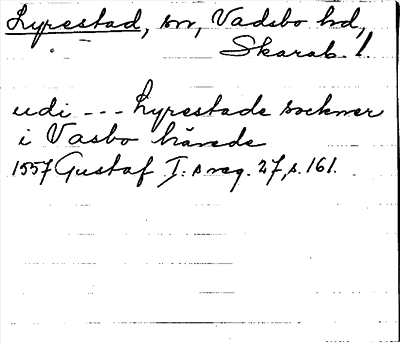 Lyrestad, sn, Vadsbo hd,
Skarab. l.
udi --- Lyrestade sockner
i Vasbo härede
1557 Gustaf I:s reg. 27, s. 161.